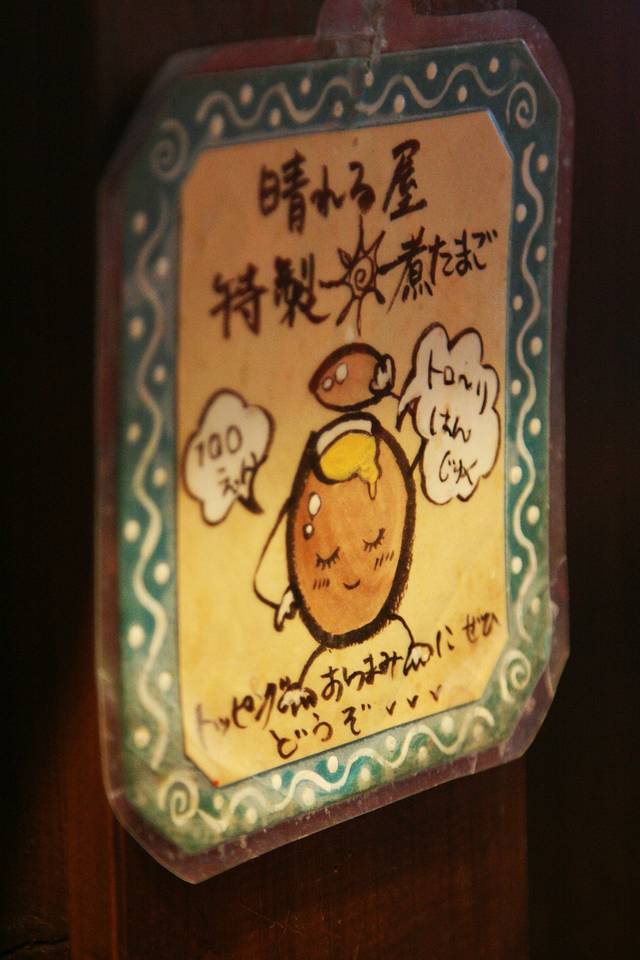 晴れる屋
特製 煮たまご
100
えん
トロ〜り
はん
じゅく
トッピング おつまみ にぜひ
どうぞ、、、